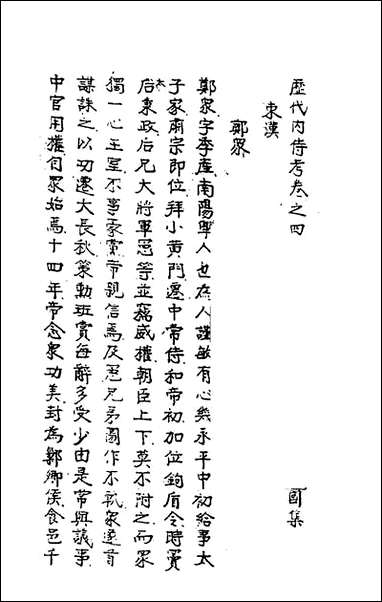 歷代內侍考卷之四　國集
東漢
鄭眾
鄭眾字季產南陽犨人也為人謹敏有心幾永平中初給事太
子家肅宗即位拜小黃門遷中常侍和帝初加位鉤盾令時竇
太后秉政后兄大將軍憲等並竊威權朝臣上下莫不附之而眾
獨一心王室不事豪黨帝親信焉及憲兄弟圖作不軌眾遂首
謀誅之以功遷大長秋策勳班賞每辭多受少由是常與議事
中官用權自眾始焉十四年帝念眾功美封為鄛鄉侯食邑千